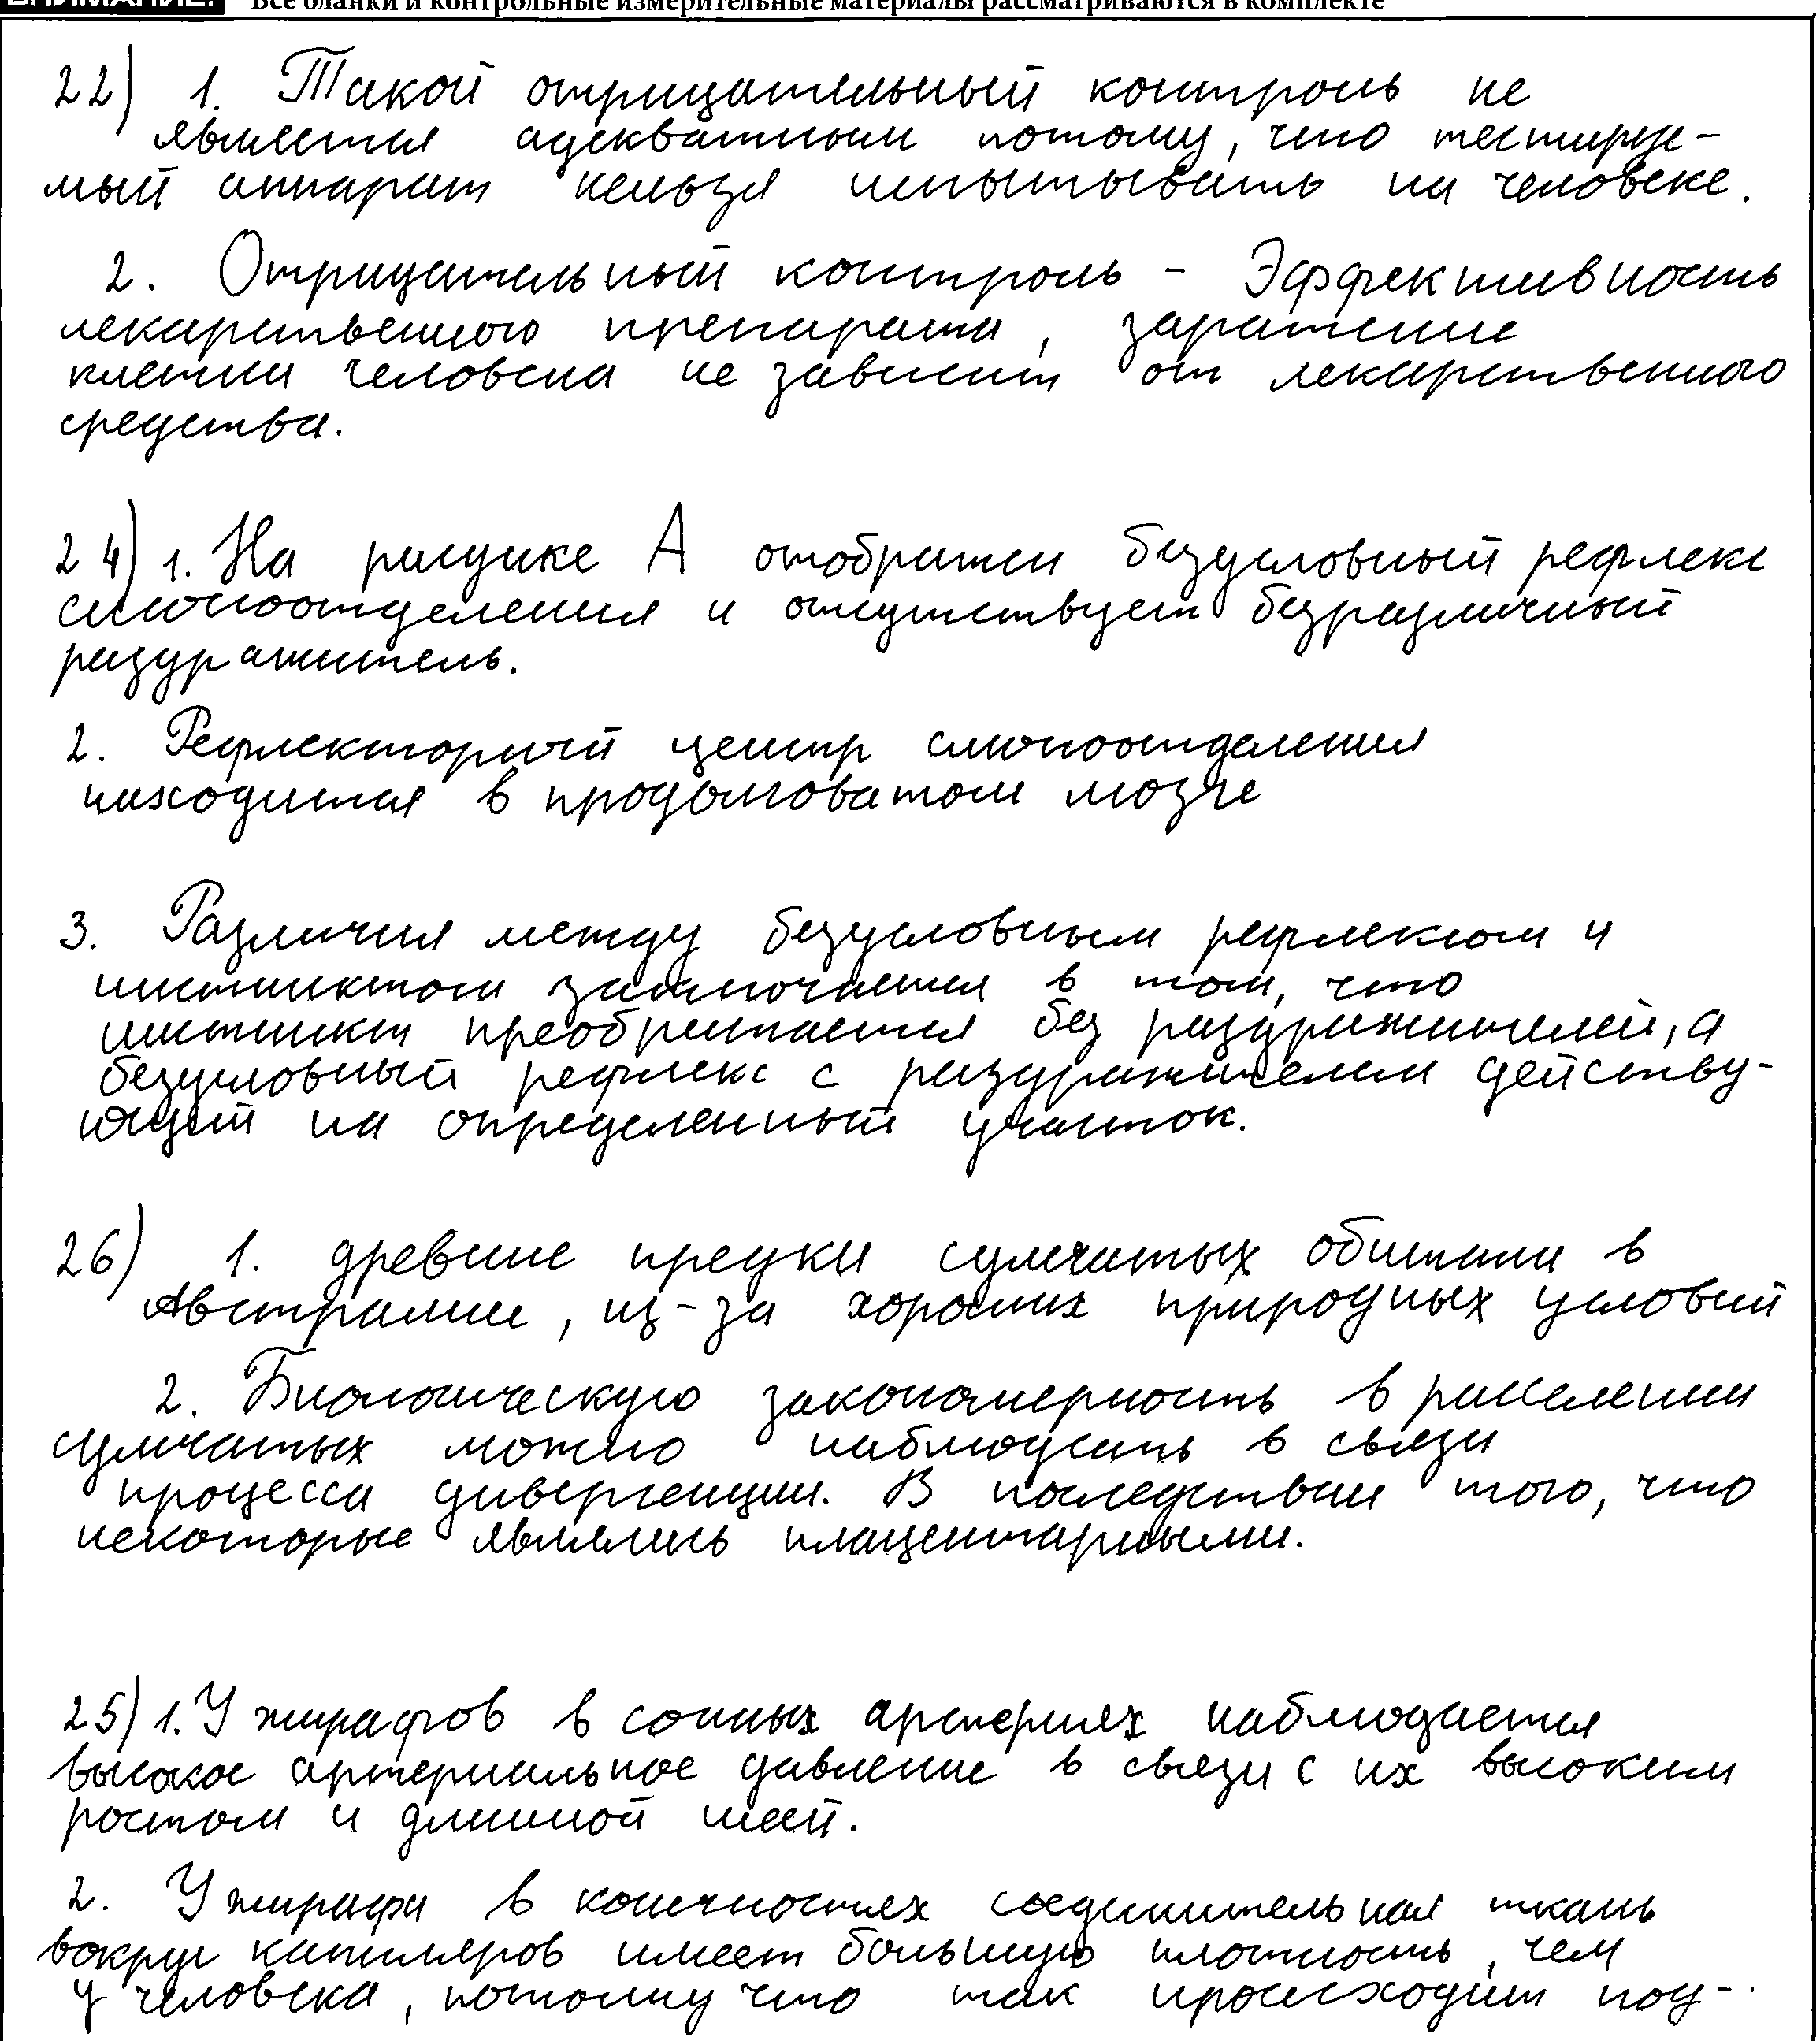 ВНИМАНИЕ! Все бланки и контрольные измерительные материалы рассматриваются в комплекте
22) 1. Такой отрицательный контроль не
является адекватным потому, что тестируе-
мый аппарат нельзя испытывать на человеке.
2. Отрицательный контроль - Эффективность
лекарственного препарата, заражение
клетки человека не зависит от лекарственного
средства.
24) 1. На рисунке А отображен безусловный рефлекс
слюноотделения и отсутствует безразличный
раздражитель.
2. Рефлекторный центр слюноотделения
находится в продолговатом мозге
3. Различия между безусловным рефлексом и
инстинктом заключается в том, что
инстинкт преобретается без раздражителей, а
безусловный рефлекс с раздражителем действу-
ющий на определенный участок.
26) 1. древние предки сумчатых обитали в
Австралии, из-за хороших природных условий
2. Биологическую закономерность в расселении
сумчатых можно наблюдать в связи
процесса дивергенции. В последствии того, что
некоторые являлись плацентарными.
25) 1. У жирафов в сонных артериях наблюдается
высокое артериальное давление в связи с их высоким
ростом и длинной шеей.
2. У жирафа в конечностях соединительная ткань
вокруг капилляров имеет большую плотность, чем
у человека, потому что так происходит под-